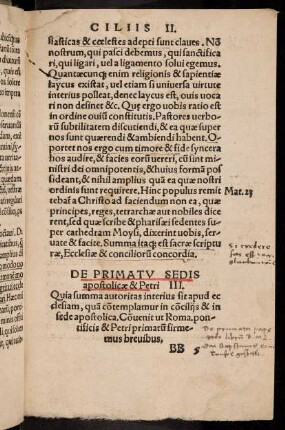 CILIIS II.
siasticas & ecclesiæ adepti sunt claues. Nō
nostrum, qui pasci debemus, qui sanctifica
ri, qui ligari, uel a ligamento solui egemus.
Quantæcunq; enim religionis & sapientiæ
laycus existat, uel etiam si uniuersa uirtute
interius polleat, dence laycus est, ouis uoca
ri non desinet &c. Que ergo uobis ratio est
in ordine ouiū constitutis. Pastores uerbo-
rum subtilitatem discutiendi, & ea quæ super
nos sunt quærendi & ambiendi habent. O-
portet nos ergo cum timore & fide syncera
hos audire, & facies eorū uereri, cū sint mini
stri dei omnipotentis, & huius formā pos
sideant, & nihil amplius quā ea quæ nostri
ordinis sunt requirere. Hinc populus remit
tebat a Christo ad faciendum non ea, quæ
principes, reges, tetrarchæ aut nobiles dice
rent, sed quæ scribæ & pharisæi sedentes su-
per cathedram Moysi, dixerint uobis, ser-
uate & facite. Summa itaq; est sacræ scriptu
ræ, Ecclesiæ & conciliorū concordia.
Mat. 23
DE PRIMATV SEDIS
apostolicæ & Petri III.
Quia summa autoritas interius sit apud ec
clesiam, quā cōtemplamur in cōcilijs & in
sede apostolica. Cōuenit ut Roma. pon-
tificis & Petri primatū firme-
mus breuibus.
De primatu pape
BB 5